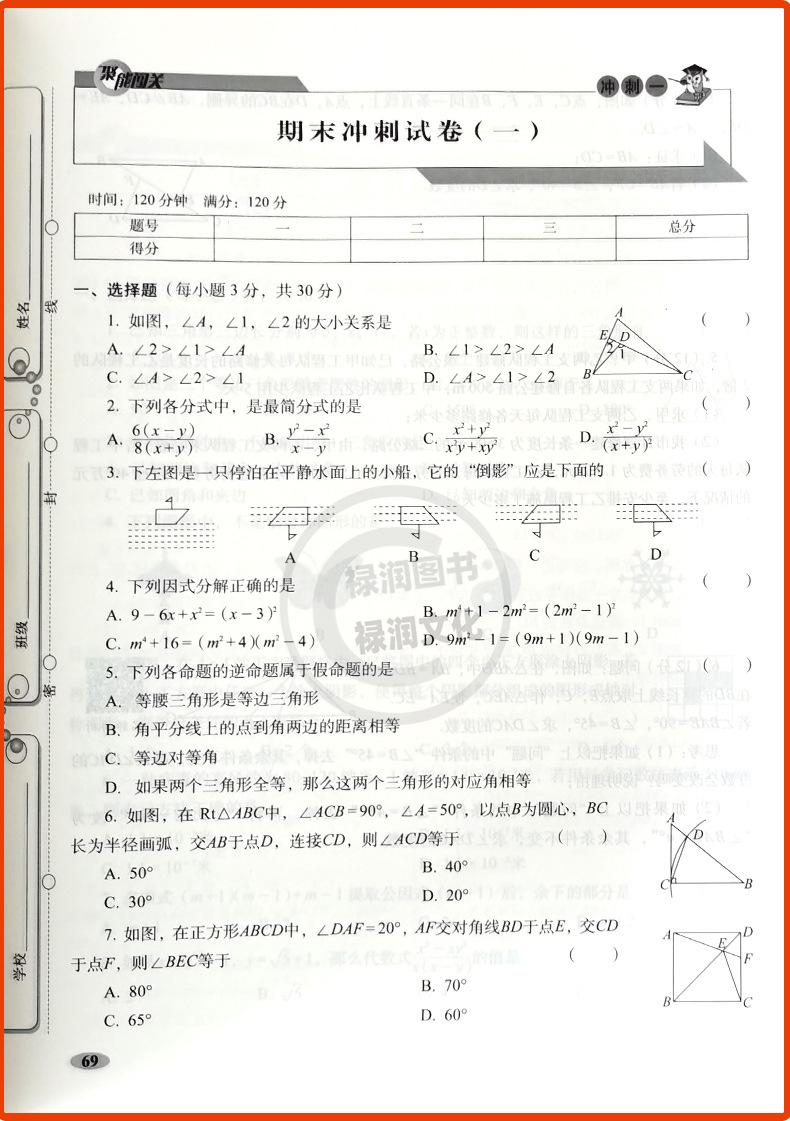 聚能闯关
冲刺一
期末冲刺试卷(一)
时间：120分钟 满分：120分
题号 一 二 三 总分
得分
一、选择题（每小题3分，共30分）
1. 如图，∠A，∠1，∠2的大小关系是 ( )
A. ∠2>∠1>∠A B. ∠1>∠2>∠A
C. ∠A>∠2>∠1 D. ∠A>∠1>∠2
A E D 2 1 B C
2. 下列各分式中，是最简分式的是 ( )
A. 6(x-y)/8(x+y) B. (y²-x²)/(x-y) C. (x²+y²)/(x²y+xy²) D. (x²-y²)/(x+y)²
3. 下左图是一只停泊在平静水面上的小船，它的“倒影”应是下面的 ( )
A B C D
4. 下列因式分解正确的是 ( )
A. 9-6x+x²=(x-3)² B. m⁴+1-2m²=(2m²-1)²
C. m⁴+16=(m²+4)(m²-4) D. 9m²-1=(9m+1)(9m-1)
5. 下列各命题的逆命题属于假命题的是 ( )
A. 等腰三角形是等边三角形
B. 角平分线上的点到角两边的距离相等
C. 等边对等角
D. 如果两个三角形全等，那么这两个三角形的对应角相等
6. 如图，在Rt△ABC中，∠ACB=90°，∠A=50°，以点B为圆心，BC
长为半径画弧，交AB于点D，连接CD，则∠ACD等于 ( )
A. 50° B. 40°
C. 30° D. 20°
A D C B
7. 如图，在正方形ABCD中，∠DAF=20°，AF交对角线BD于点E，交CD
于点F，则∠BEC等于 ( )
A. 80° B. 70°
C. 65° D. 60°
A D E F B C
69
姓名
班级
学校
线
封
密
禄润图书
禄润文化